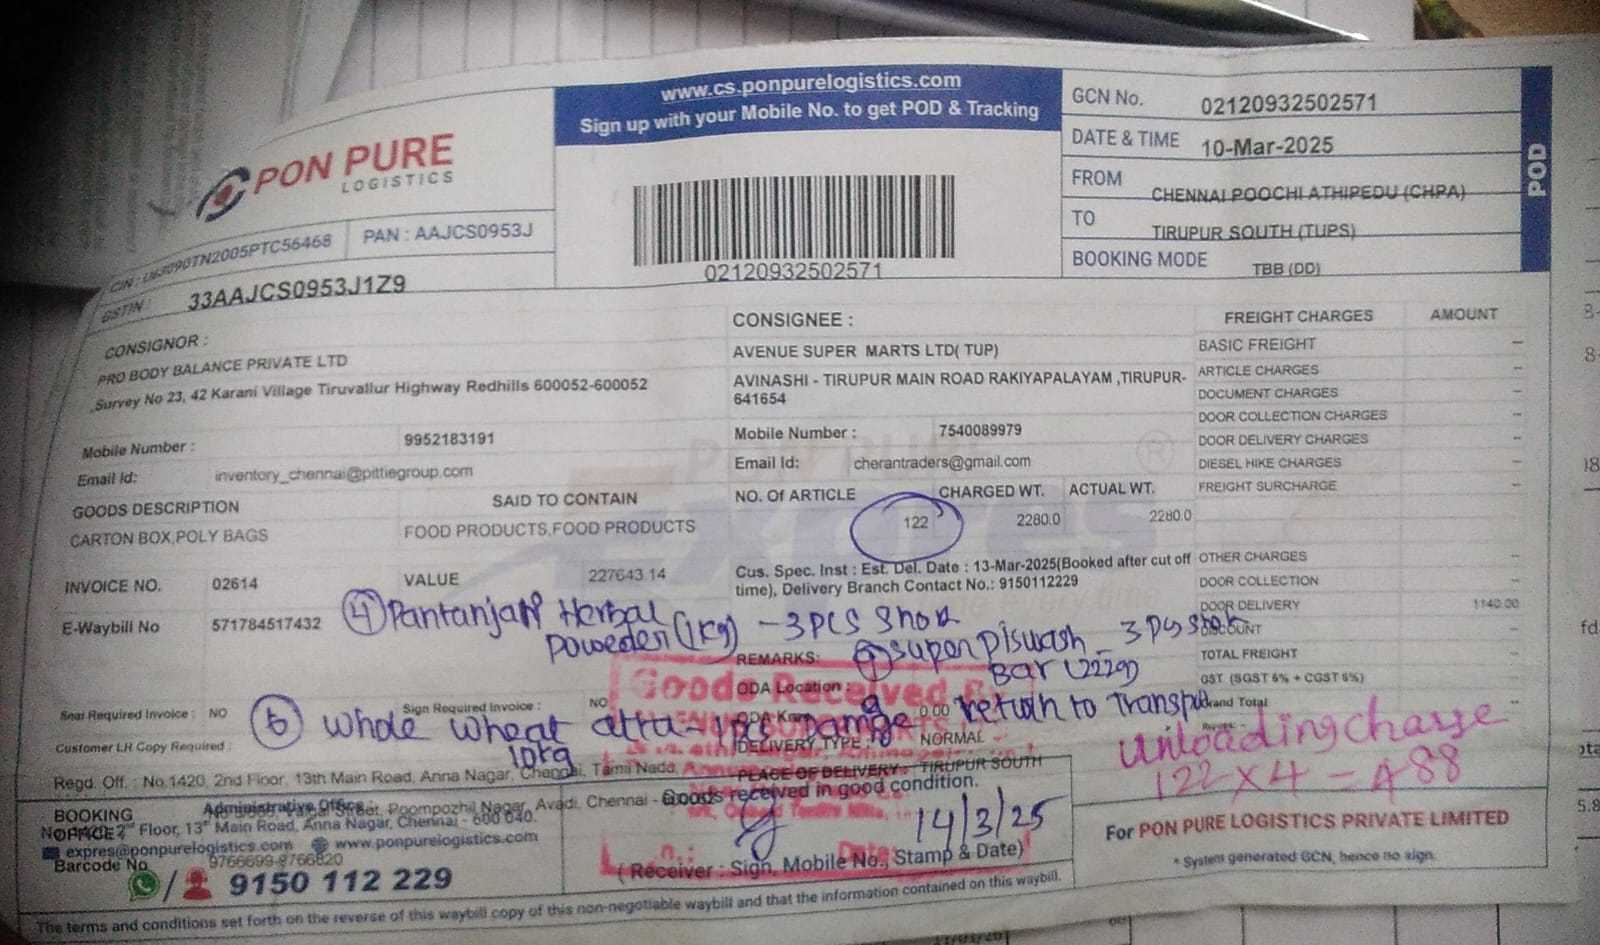 www.cs.ponpurelogistics.com
Sign up with your Mobile No. to get POD & Tracking
PON PURE
LOGISTICS
CIN : U63090TN2005PTC56468
PAN : AAJCS0953J
GSTIN : 33AAJCS0953J1Z9
02120932502571
GCN No. 02120932502571
DATE & TIME 10-Mar-2025
FROM CHENNAI POOCHI ATHIPEDU (CHPA)
TO TIRUPUR SOUTH (TUPS)
BOOKING MODE TBB (DD)
POD
CONSIGNOR :
PRO BODY BALANCE PRIVATE LTD
,Survey No 23, 42 Karani Village Tiruvallur Highway Redhills 600052-600052
Mobile Number : 9952183191
Email Id: inventory_chennai@pittiegroup.com
CONSIGNEE :
AVENUE SUPER MARTS LTD( TUP)
AVINASHI - TIRUPUR MAIN ROAD RAKIYAPALAYAM ,TIRUPUR-
641654
Mobile Number : 7540089979
Email Id: cherantraders@gmail.com
FREIGHT CHARGES AMOUNT
BASIC FREIGHT --
ARTICLE CHARGES --
DOCUMENT CHARGES --
DOOR COLLECTION CHARGES --
DOOR DELIVERY CHARGES --
DIESEL HIKE CHARGES --
FREIGHT SURCHARGE --
OTHER CHARGES --
DOOR COLLECTION --
DOOR DELIVERY 1140.00
DISCOUNT --
TOTAL FREIGHT --
GST (SGST 6% + CGST 6%) --
Grand Total --
GOODS DESCRIPTION SAID TO CONTAIN
CARTON BOX,POLY BAGS FOOD PRODUCTS,FOOD PRODUCTS
NO. Of ARTICLE CHARGED WT. ACTUAL WT.
122 2280.0 2280.0
INVOICE NO. 02614 VALUE 227643.14
Cus. Spec. Inst : Est. Del. Date : 13-Mar-2025(Booked after cut off
time), Delivery Branch Contact No.: 9150112229
E-Waybill No 571784517432
④ Pantanjali Herbal
Poweder (1kg) - 3 PCS Short
REMARKS:
super Diswash - 3 pcs
Bar (222g)
Goods Received
ODA Location :
Seal Required Invoice : NO Sign Required Invoice : NO
⑤ whole wheat atta - 1 pcs
10kg
return to
0.00
DELIVERY TYPE : NORMAL
Customer LR Copy Required :
PLACE OF DELIVERY - TIRUPUR SOUTH
unloading charge
122 x 4 = 488
Regd. Off. : No.1420, 2nd Floor, 13th Main Road, Anna Nagar, Chennai, Tamil Nadu,
BOOKING
OFFICE:
Administrative Office
Street, Poompozhil Nagar, Avadi, Chennai -
2nd Floor, 13th Main Road, Anna Nagar, Chennai - 600 040.
expres@ponpurelogistics.com www.ponpurelogistics.com
Barcode No 9766699-9766820
/ 9150 112 229
Goods received in good condition.
14/3/25
( Receiver : Sign, Mobile No., Stamp & Date)
For PON PURE LOGISTICS PRIVATE LIMITED
* System generated GCN, hence no sign.
The terms and conditions set forth on the reverse of this waybill copy of this non-negotiable waybill and that the information contained on this waybill.